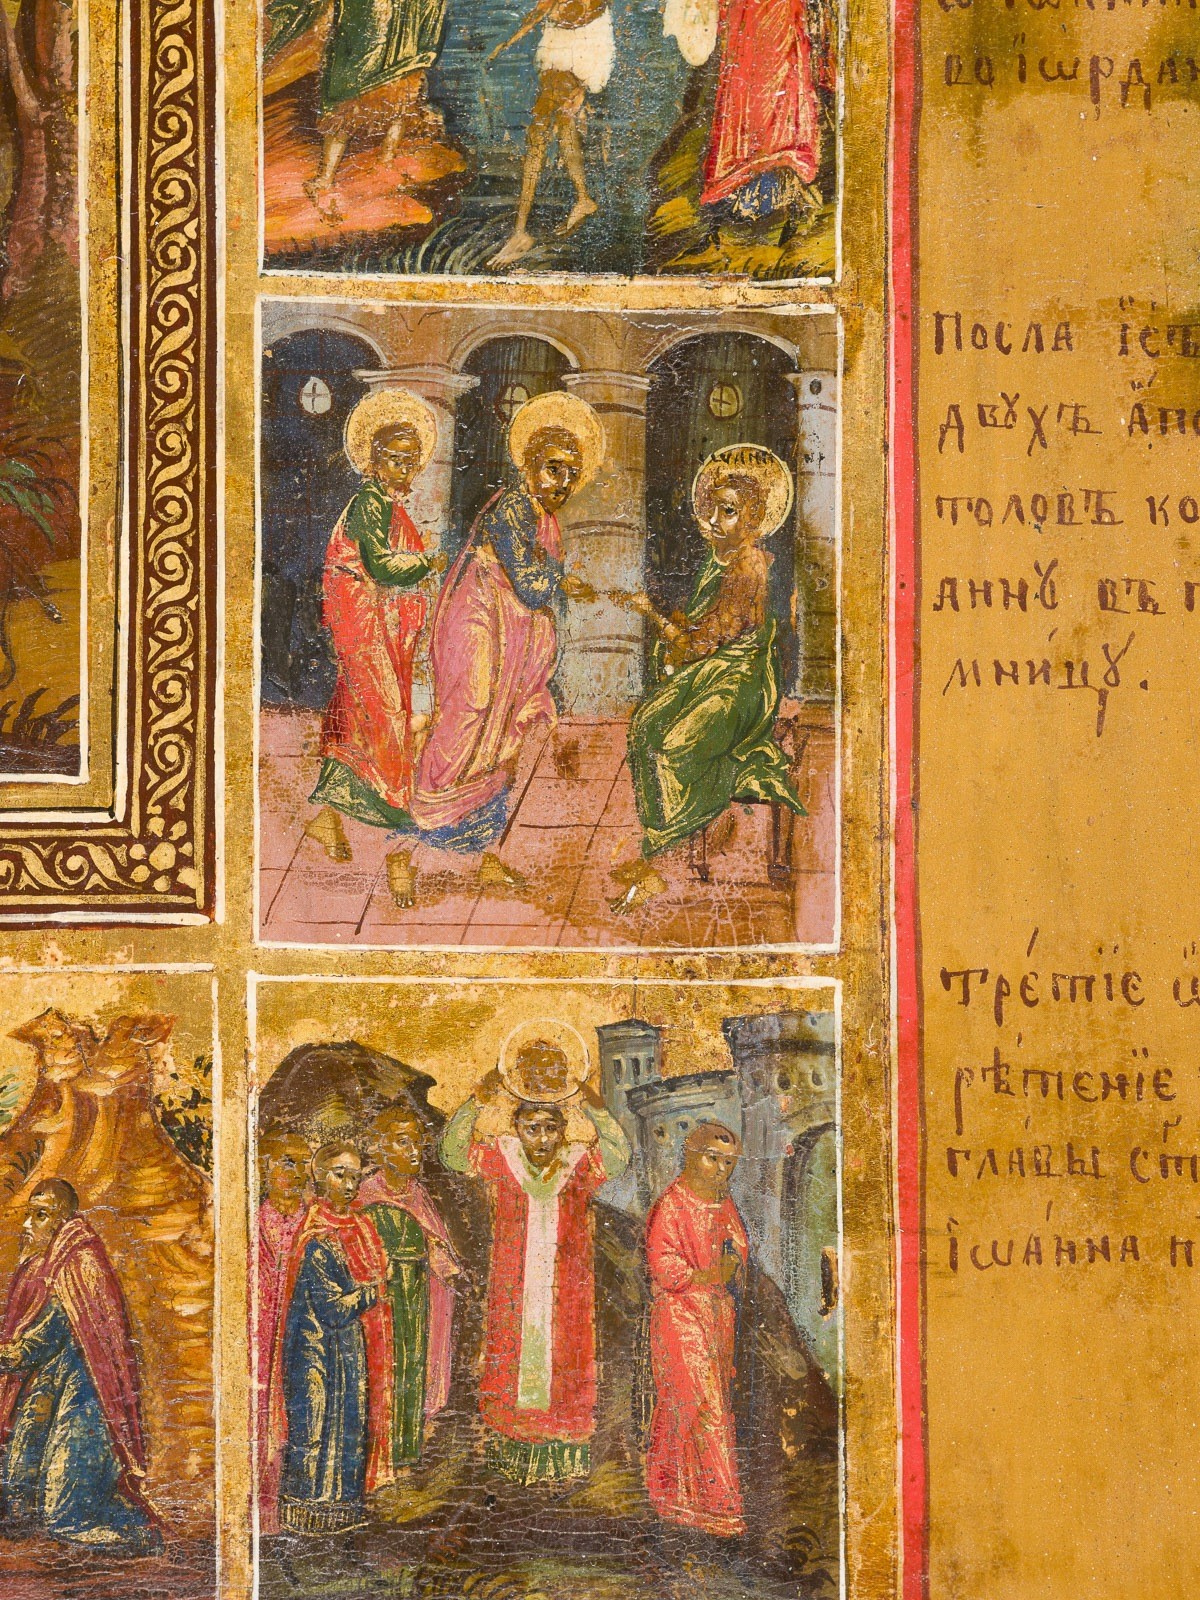 во Їѡрдан
Посла Їс҃ъ
двꙋхъ апо
толовъ ко
аннꙋ въ
мницꙋ.
Іѡанн
Трéтїе
рѣтенїе
глáвы ст
Іѡáнна п